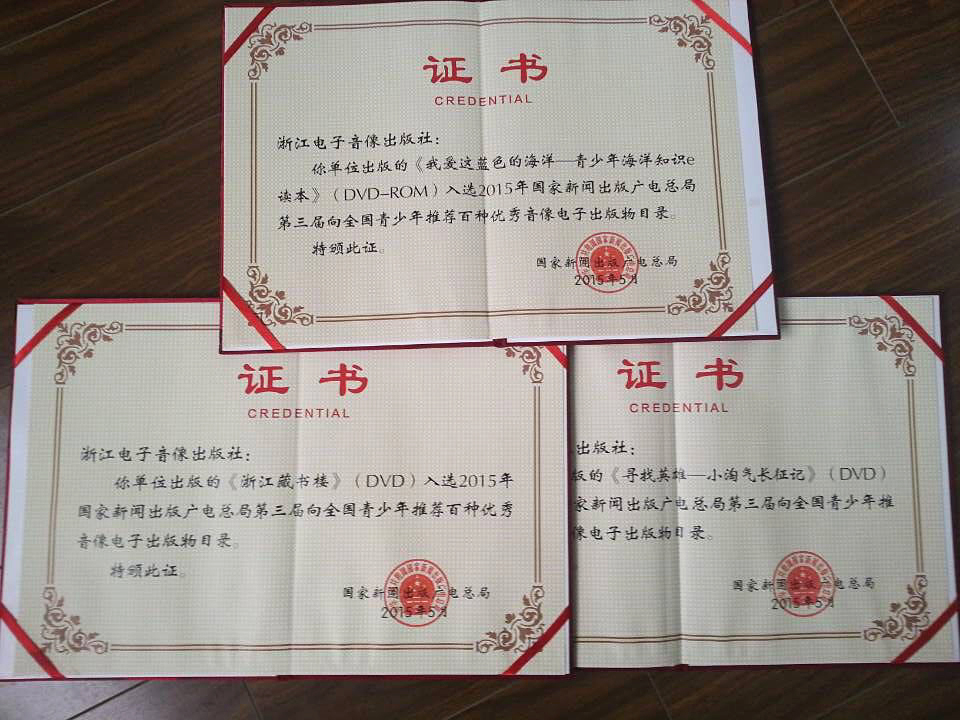 证书
CREDENTIAL
浙江电子音像出版社：
你单位出版的《我爱这蓝色的海洋—青少年海洋知识e
读本》（DVD-ROM）入选2015年国家新闻出版广电总局
第三届向全国青少年推荐百种优秀音像电子出版物目录。
特颁此证。
国家新闻出版广电总局
2015年5月
证书
CREDENTIAL
浙江电子音像出版社：
你单位出版的《浙江藏书楼》（DVD）入选2015年
国家新闻出版广电总局第三届向全国青少年推荐百种优秀
音像电子出版物目录。
特颁此证。
国家新闻出版广电总局
2015年5月
证书
CREDENTIAL
出版社：
版的《寻找英雄—小淘气长征记》（DVD）
家新闻出版广电总局第三届向全国青少年推
像电子出版物目录。
国家新闻出版广电总局
2015年5月